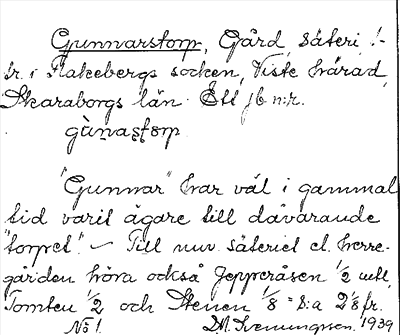 Gunnarstorp, Gård, säteri 1-
tr. i Flakebergs socken, Viste härad,
Skaraborgs län. Ett jb n:r.
gùnastorp
"Gunnar" har väl i gammal
tid varit ägare till dåvarande
"torpet". — Till nuv. säteriet el. herre-
gården höra också Jepperåsen 1/2 mtl,
Tomten 1/2 och Stenen 1/8 = S:a 2 1/8 fr.
No 1. M. Svenungson. 1939